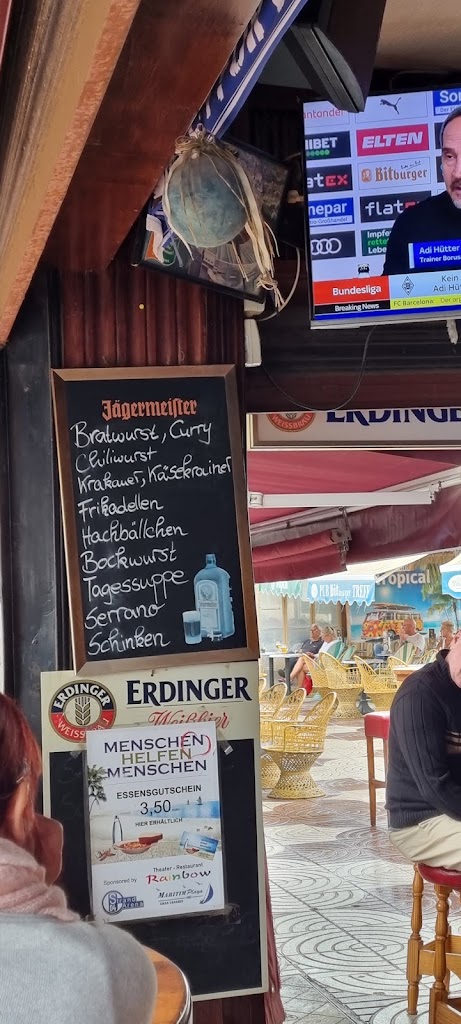 ELTEN
Bitburger
flatex
Adi Hütter
Bundesliga
Kein
Breaking News
FC Barcelona
ERDINGE
WEISSBRÄU
Jägermeister
Bratwurst, Curry
Chiliwurst
Krakauer, Käsekrainer
Frikadellen
Hachbällchen
Bockwurst
Tagessuppe
Serrano
Schinken
Tropical
PUB Bitburger TREFF
ERDINGER
WEISSBRÄU
ERDINGER
Weißbier
MENSCHEN
HELFEN
MENSCHEN
ESSENSGUTSCHEIN
3,50
HIER ERHÄLTLICH
Theater - Restaurant
Sponsored by
Rainbow
MARITIM Playa